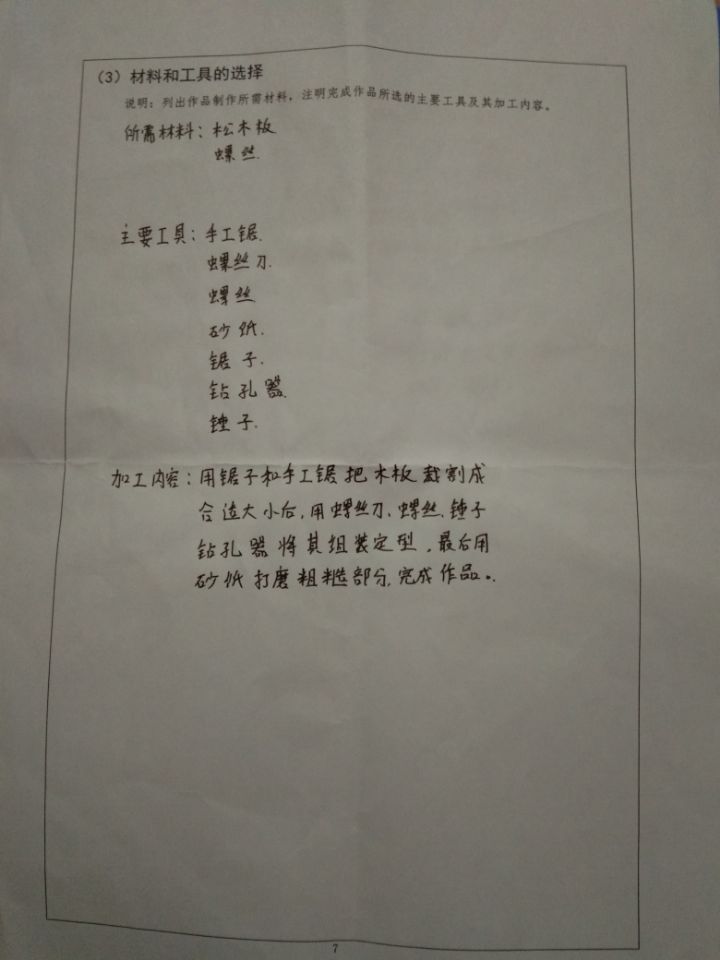 （3）材料和工具的选择
说明：列出作品制作所需材料，注明完成作品所选的主要工具及其加工内容。
所需材料：松木板
螺丝.
主要工具：手工锯.
螺丝刀.
螺丝
砂纸.
锯子.
钻孔器.
锤子.
加工内容：用锯子和手工锯把木板裁割成
合适大小后，用螺丝刀、螺丝、锤子
钻孔器将其组装定型，最后用
砂纸打磨粗糙部分，完成作品。
7